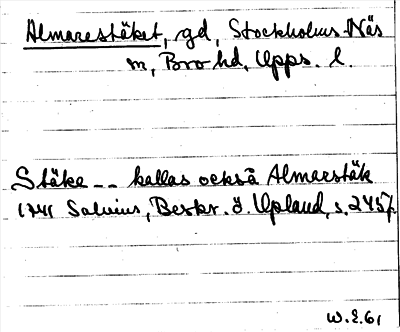 Almarestäket, gd, Stockholms-Näs
sn, Bro hd, Upps. l.
Stäke -- kallas också Almarstäk
1741 Salvius, Beskr. ö. Upland, s. 245f.
W.E. 61